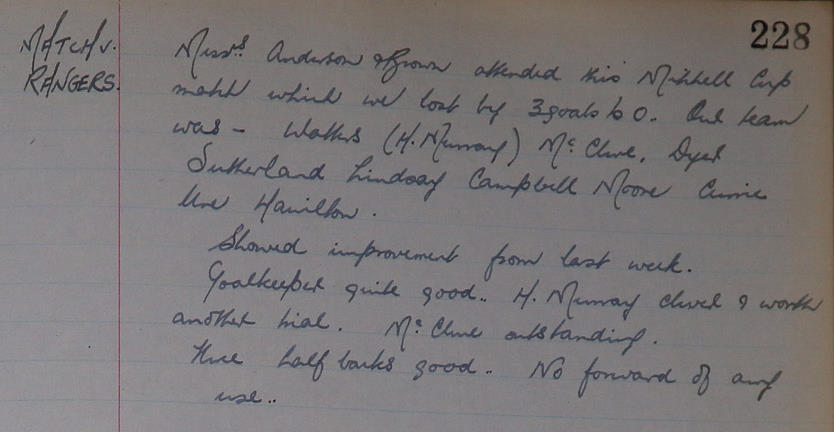 228
MATCH v.
RANGERS.
Messrs Anderson & Brown attended this Mitchell Cup
match which we lost by 3 goals to 0. Our team
was - Watters (H. Murray) McClure, Dyer
Sutherland Lindsay Campbell Moore Currie
Ure Hamilton.
Showed improvement from last week.
Goalkeeper quite good.. H. Murray clever & worth
another trial. McClure outstanding.
Three half backs good.. No forward of any
use..